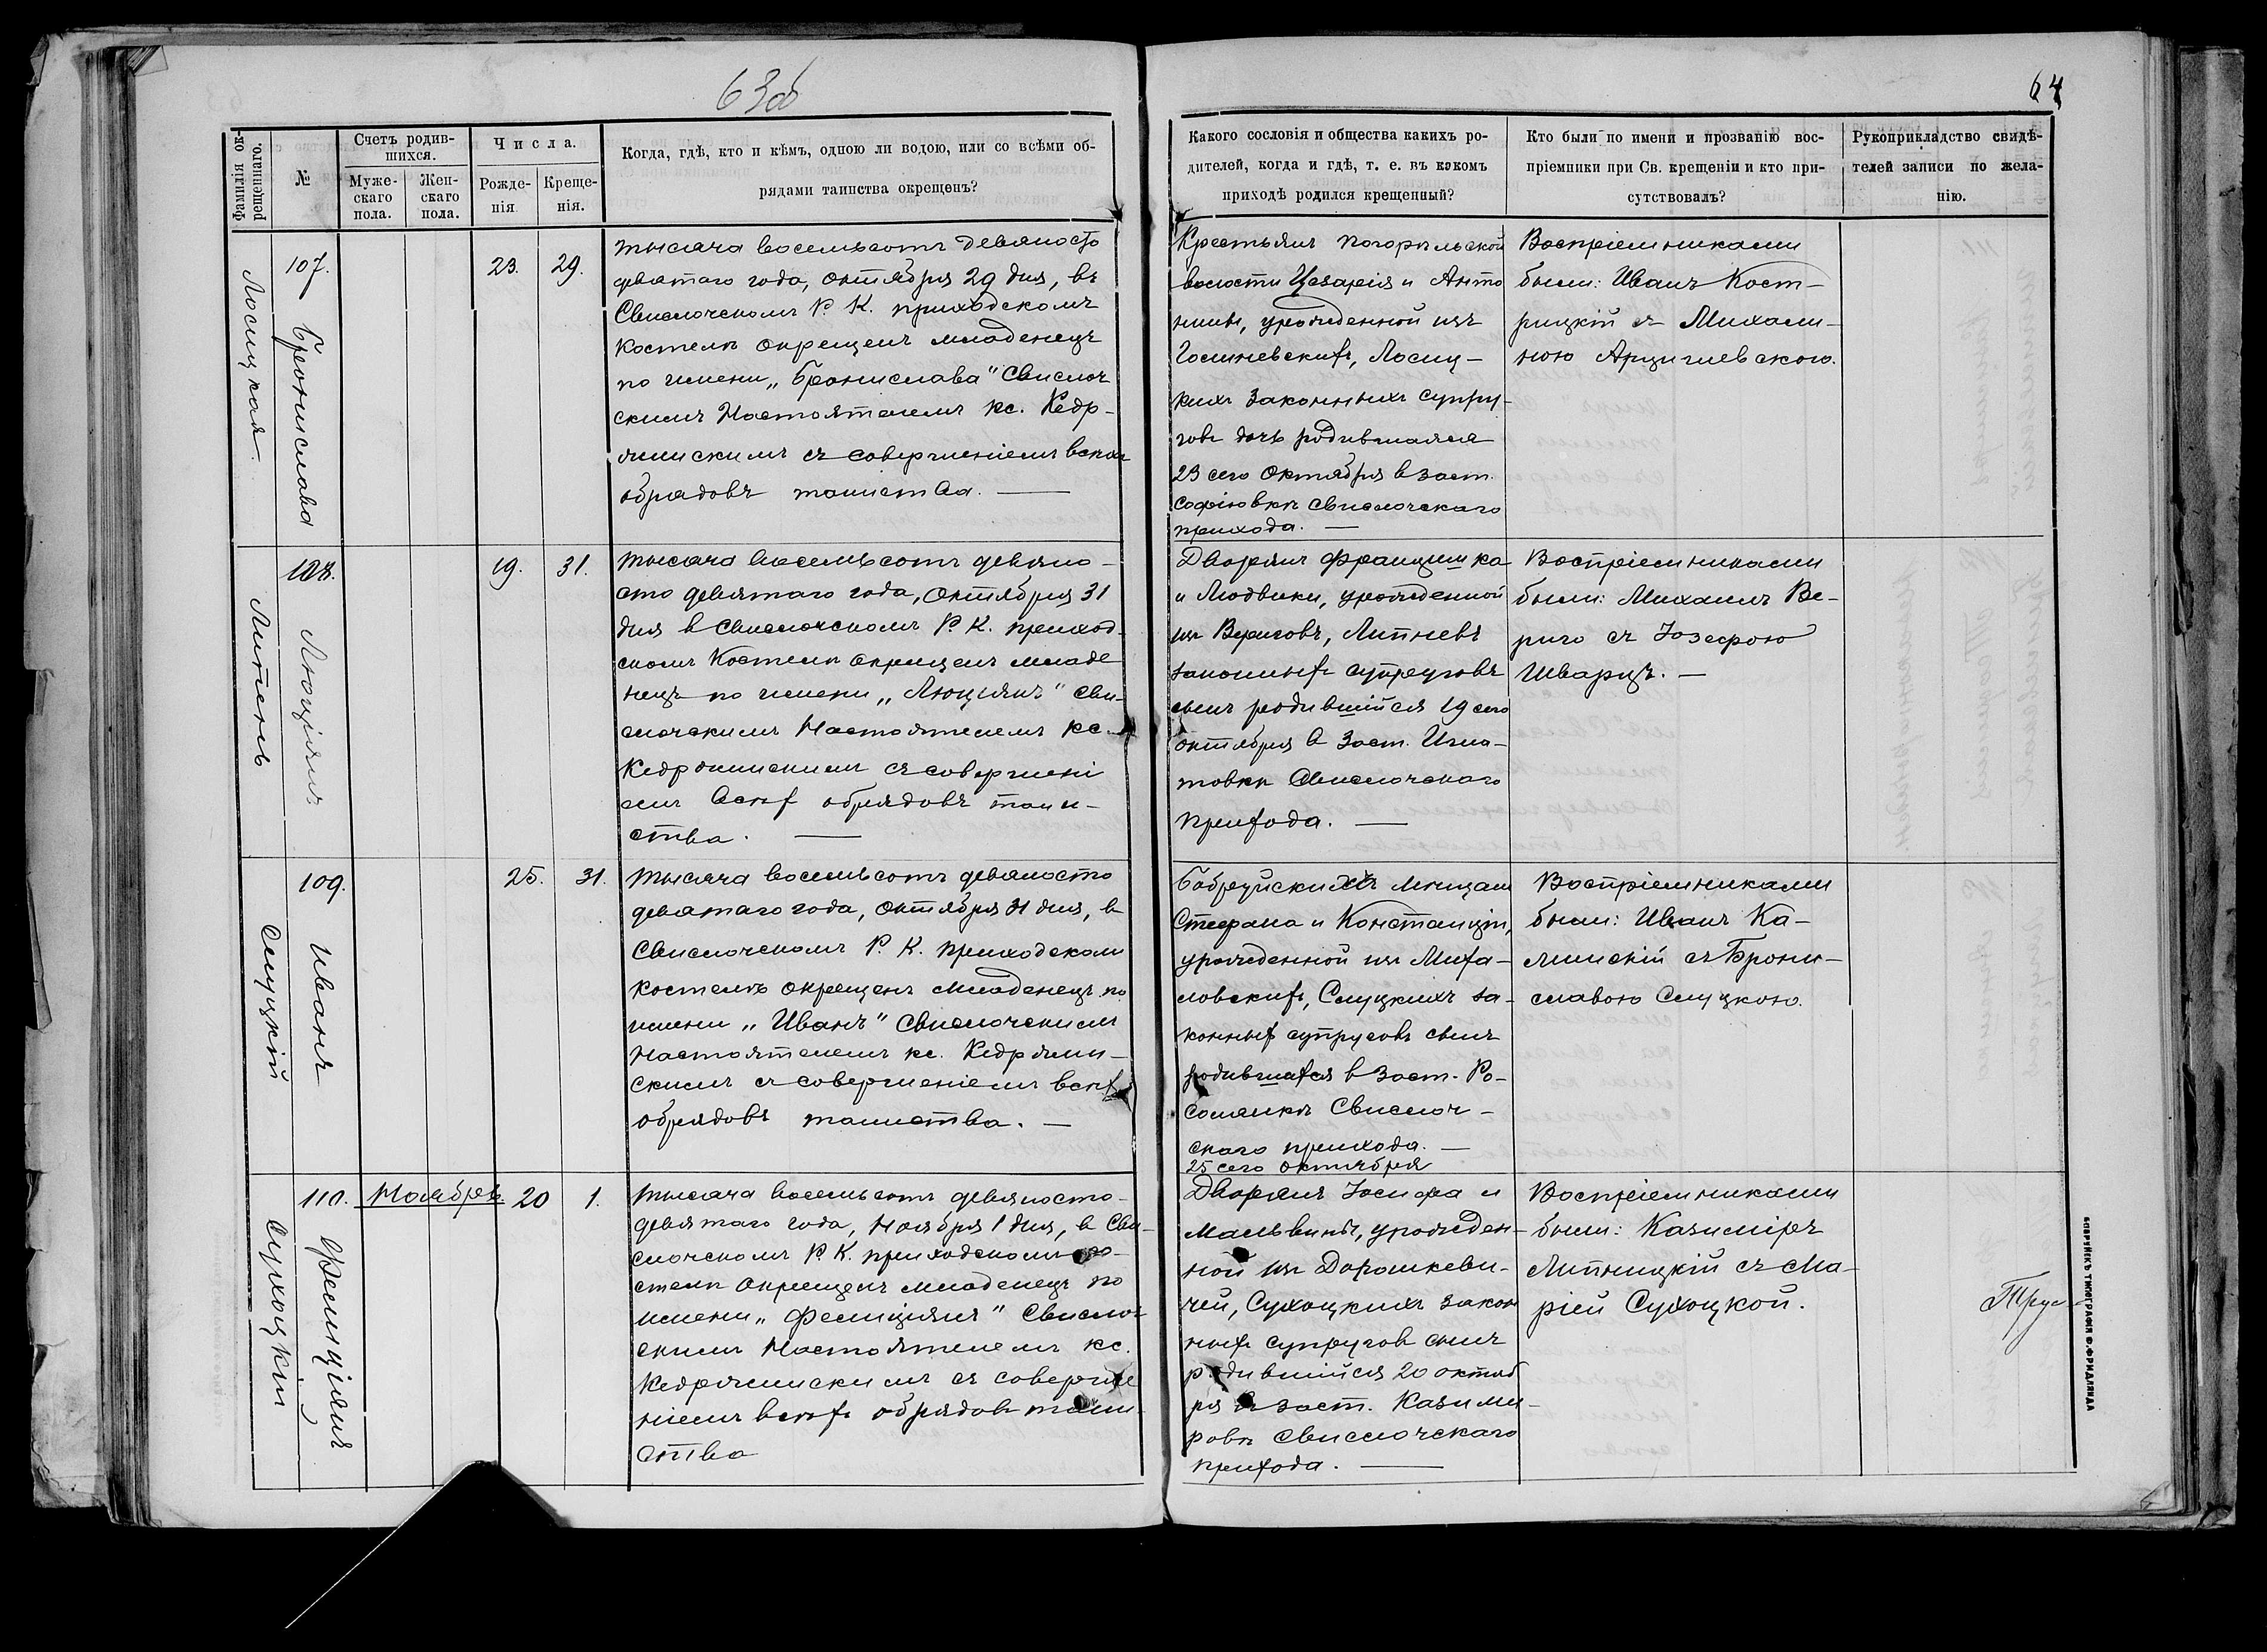 63об
64
Фамилія ок-
рещеннаго.
№
Счетъ родив-
шихся.
Муже-
скаго
пола.
Жен-
скаго
пола.
Числа.
Рожде-
нія
Креще-
нія.
Когда, гдѣ, кто и кѣмъ, одною ли водою, или со всѣми об-
рядами таинства окрещенъ?
Какого сословія и общества какихъ ро-
дителей, когда и гдѣ, т. е. въ какомъ
приходѣ родился крещенный?
Кто были по имени и прозванію вос-
пріемники при Св. крещеніи и кто при-
сутствовалъ?
Рукоприкладство свидѣ-
телей записи по жела-
нію.
Лосицкая.
107.
Бронислава
23.
29.
тысяча восемьсотъ девяносто
девятаго года, октября 29 дня, въ
Свислочскомъ Р. К. приходскомъ
костелѣ окрещенъ младенецъ
по имени „Бронислава" Свислоч
скимъ Настоятелемъ кс. Кедр-
жинскимъ съ совершеніемъ всѣхъ
обрядовъ таинства. —
Крестьянъ Погорѣльской
волости Цезарія и Анто
нины, урожденной изъ
Лосиц-
кихъ законныхъ супру-
говъ дочь родившаяся
23 сего Октября въ заст.
Софіювкѣ Свислочскаго
прихода. —
Воспріемниками
были: Иванъ Кост-
рицкій съ Михали-
ною
Липень
108.
Люціянъ
19.
31.
Тысяча восемьсотъ девяно-
сто девятаго года, Октября 31
дня в Свислочскомъ Р. К. приход
скомъ Костелѣ окрещенъ младе
нецъ по имени „Люціянъ" Сви-
слочскимъ Настоятелемъ кс.
съ совершені
емъ всѣх обрядовъ таин-
ства. —
Дворянъ Францишка
и Людвики, урожденной
изъ Вериговъ, Липневъ
законных супруговъ
сынъ родившійся 19 сего
октября в Заст. Игна-
товкѣ Свислочскаго
прихода. —
Воспріемниками
были: Михаилъ Ве-
риго съ Юзефою
Шварцъ. —
Слуцкій
109.
Иванъ
25.
31.
Тысяча восемьсотъ девяносто
девятаго года, Октября 31 дня, в
Свислочскомъ Р. К. приходском
костелѣ окрещенъ младенецъ по
имени „Иванъ" Свислочскимъ
Настоятелемъ кс. Кедржин-
скимъ съ совершеніемъ всѣх
обрядовъ таинства. —
Бобруйскихъ мѣщанъ
Стефана и Констанціи,
урожденной изъ Миха-
ловских, Слуцкихъ за-
конных супруговъ сынъ
в Заст. Ро-
Свислоч-
скаго прихода. —
25 сего октября
Воспріемниками
были: Иванъ Ка-
линскій съ Брони-
славою Слуцкою.
Сухоцкій
110.
Фелиціянъ
Ноябрь.
20
1.
Тысяча восемьсотъ девяносто
девятаго года, Ноября 1 дня, в Сви-
слочскомъ Р. К. приходскомъ ко-
стелѣ окрещенъ младенецъ по
имени „Фелиціянъ" Свислоч
скимъ Настоятелемъ кс.
Кедржинскимъ съ соверше
ніемъ всѣхъ обрядовъ таин-
ства
Дворянъ Іосифа и
Мальвины, урожден-
ной изъ Дорошкеви-
чей, Сухоцкихъ закон
ных супругов сынъ
родившійся 20 октяб
ря въ заст. Казими-
ровѣ Свислочскаго
прихода. —
Воспріемниками
были: Казиміръ
Липницкій съ Ма-
ріей Сухоцкой.
БОБРУЙСКЪ ТИПОГРАФІЯ Ф. ФРИДЛЯНДА